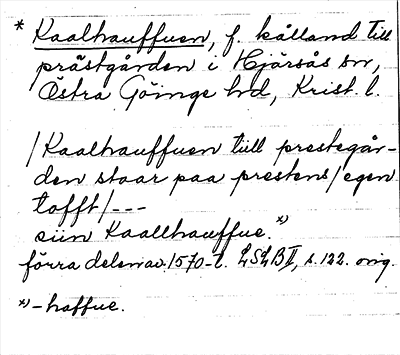 * Kaalhauffuen, f. kålland till
prästgården i Hjärsås sn,
Östra Göinge hd, Krist. l.
/Kaalhauffuen tiill prestegår-
den staar paa prestens/egen
tofft/---
siin Kaallhauffue.*)
förra delen av 1570-t. LSLB II, s. 122. orig.
*) -haffue.